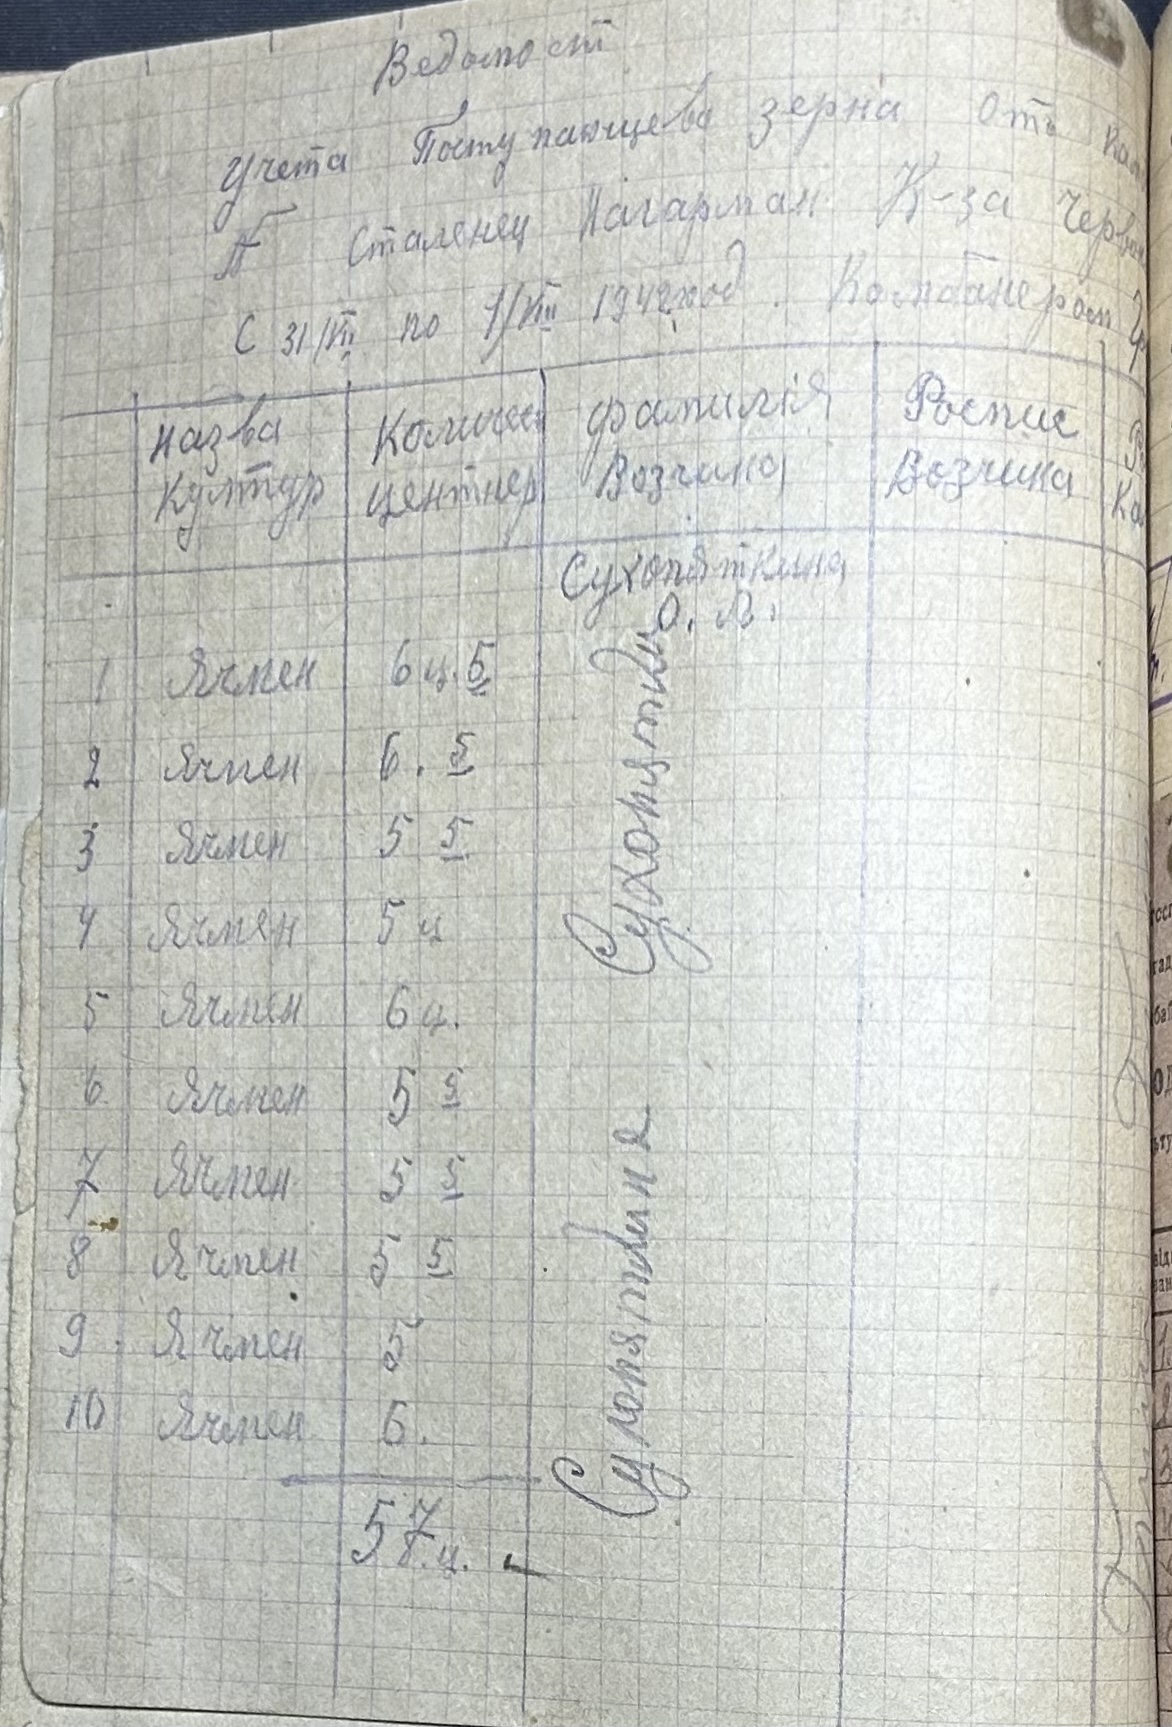 Ведомост
учета Поступающева зерна Отъ Ком
Сталенец Нагарман К-за Червон
С 31/VII по 1/VIII 1942 год. Комбанером
назва Количес фамилія Роспис
Култур центнер Возчика Возчика Ка
Сухопяткина
О. Л.
1 Ячмен 6 ц. 5
2 Ячмен 6. 5
3 Ячмен 5 5
4 Ячмен 5 ц
5 Ячмен 6 ц.
6 Ячмен 5 5
7 Ячмен 5 5
8 Ячмен 5 5
9 Ячмен 5
10 Ячмен 6.
57 ц.
Сухопяткина